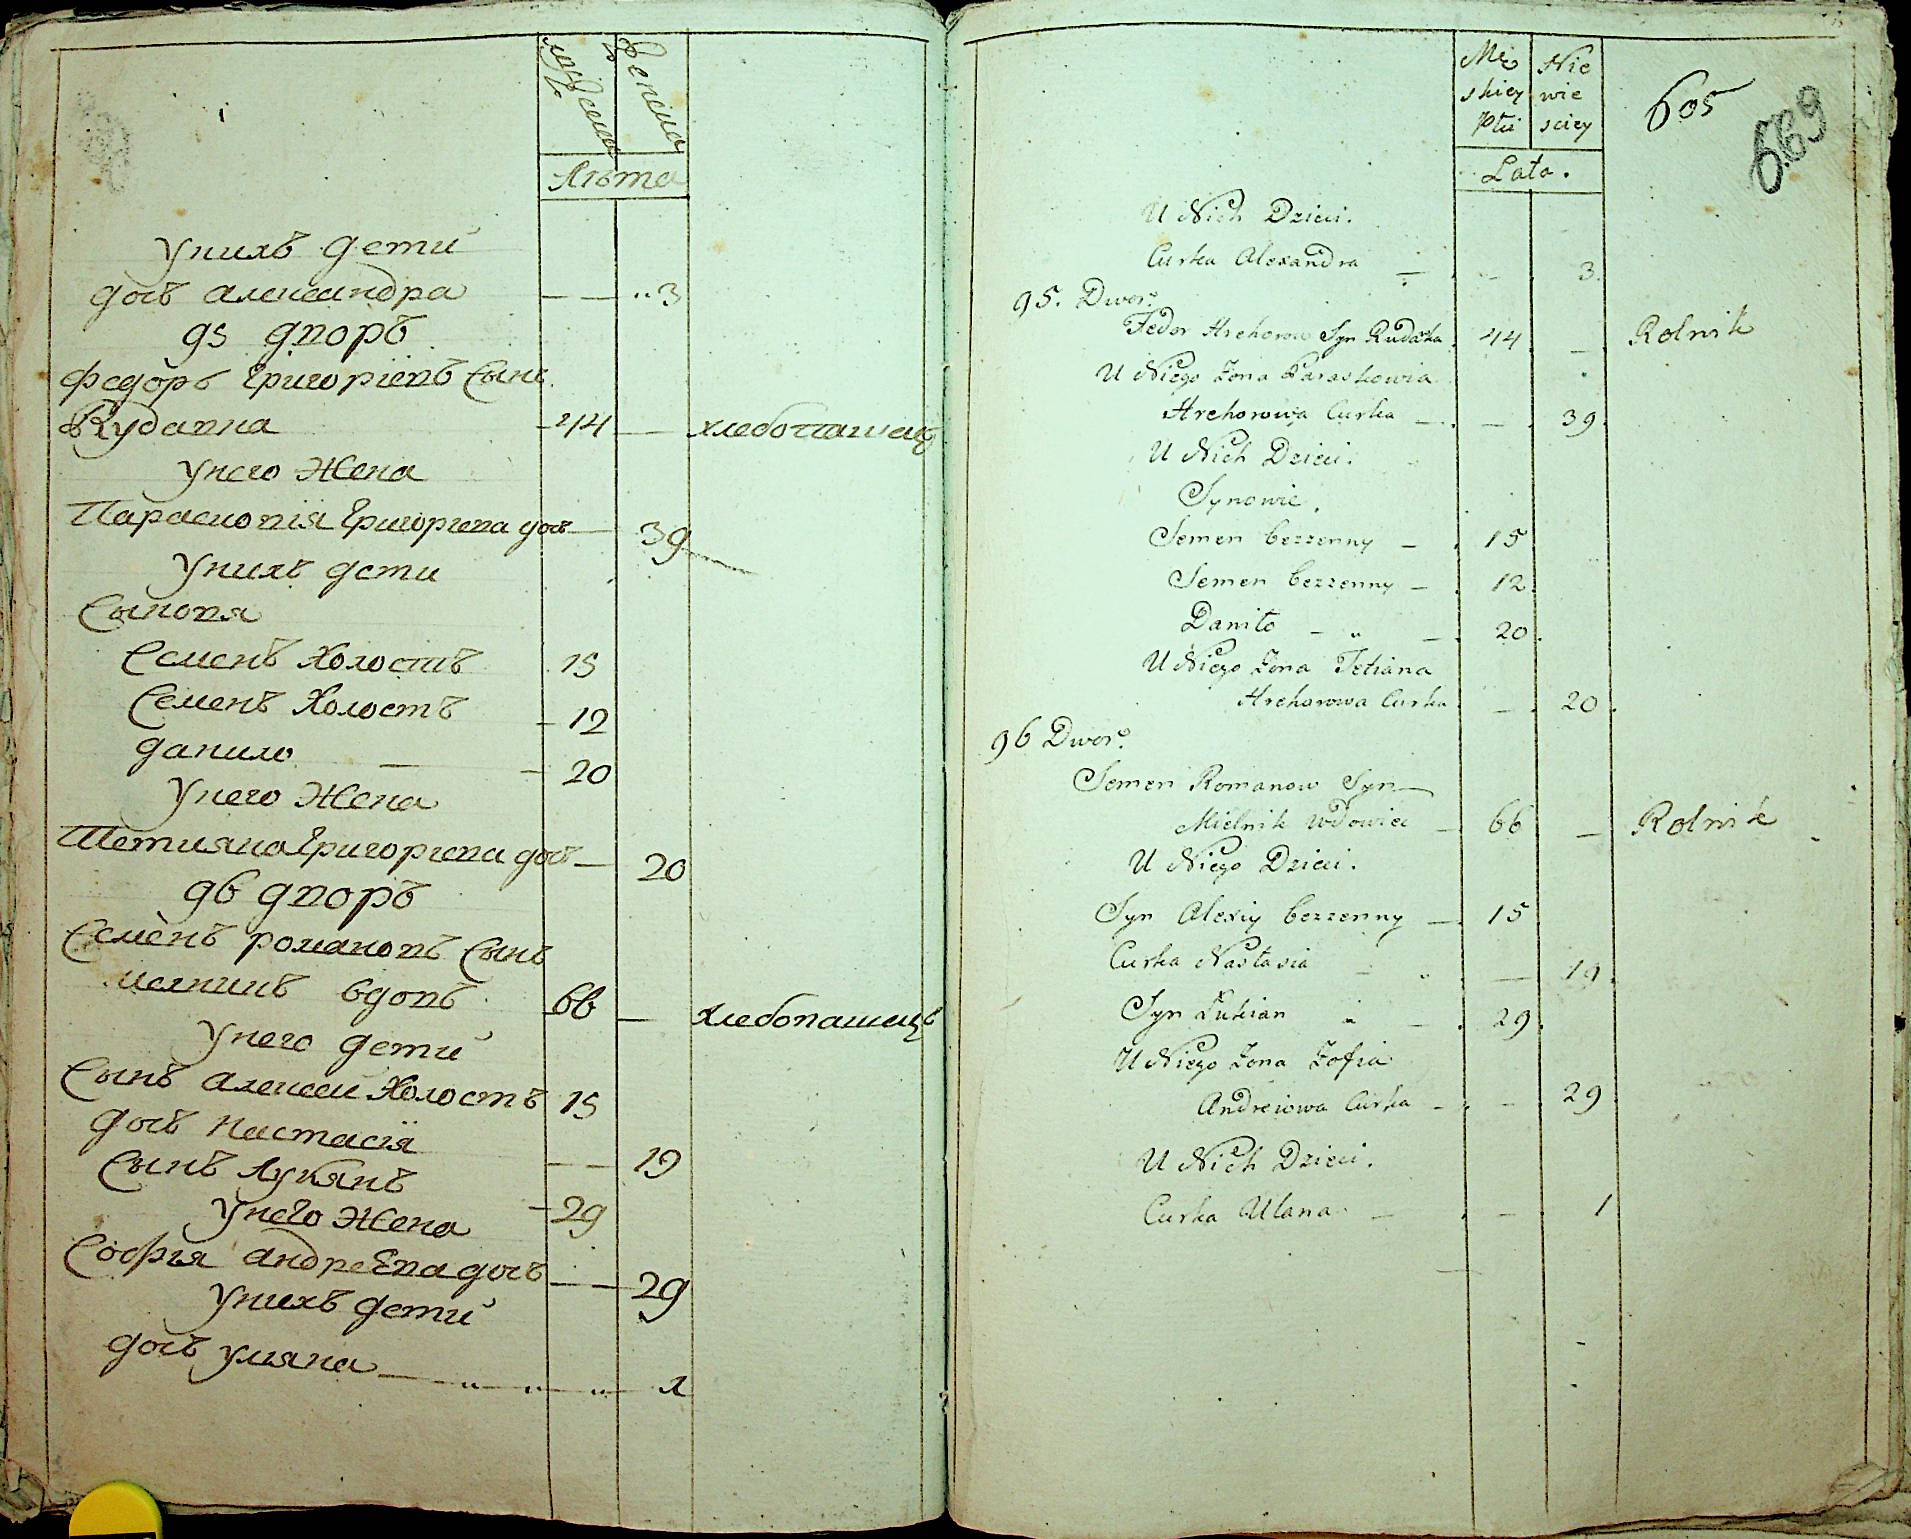 мужеска
женска
Лѣта
Унихъ дети
дочь александра — — 3
95 дворъ
Федоръ Григориевъ Сынъ
Рудавка 44 — хлебопашецъ
Унего Жена
Парасковия Григориева дочь — 39
Унихъ дети
Сыновя
Семенъ Холостъ 15
Семенъ Холостъ 12
данило — 20
Унего Жена
Тетияна Григориева дочь — 20
96 дворъ
Семенъ романовъ Сынъ
мелникъ вдовъ 66 — хлебопашецъ
Унего дети
Сынъ алексей Холостъ 15
дочь настасия — — 19
Сынъ Лукянъ 29
Унего Жена
София андреева дочь — — 29
Унихъ дети
дочь уляна 1
Mę
skiey
Płci
Nie
wie
sciey
605
669
Lata.
U Nich Dzieci.
Curka Alexandra — — 3.
95. Dwor.
Fedor Hrehorow Syn Rudawka 44 — Rolnik
U Niego Zona Paraskowia
Hrehorowa Curka — — 39
U Nich Dzieci.
Synowie.
Semen bezzenny — 15
Semen bezzenny — 12.
Daniło — „ — 20.
U Niego Zona Tetiana
Hrehorowa Curka — 20.
96 Dwor.
Semen Romanow Syn
Mielnik Wdowiec — 66 — Rolnik
U Niego Dzieci.
Syn Alexiy bezzenny — 15
Curka Nastasia — „ — 19.
Syn Łukian „ — 29.
U Niego Zona Zofia
Andreiowa Curka — — 29
U Nich Dzieci.
Curka Ulana — — 1